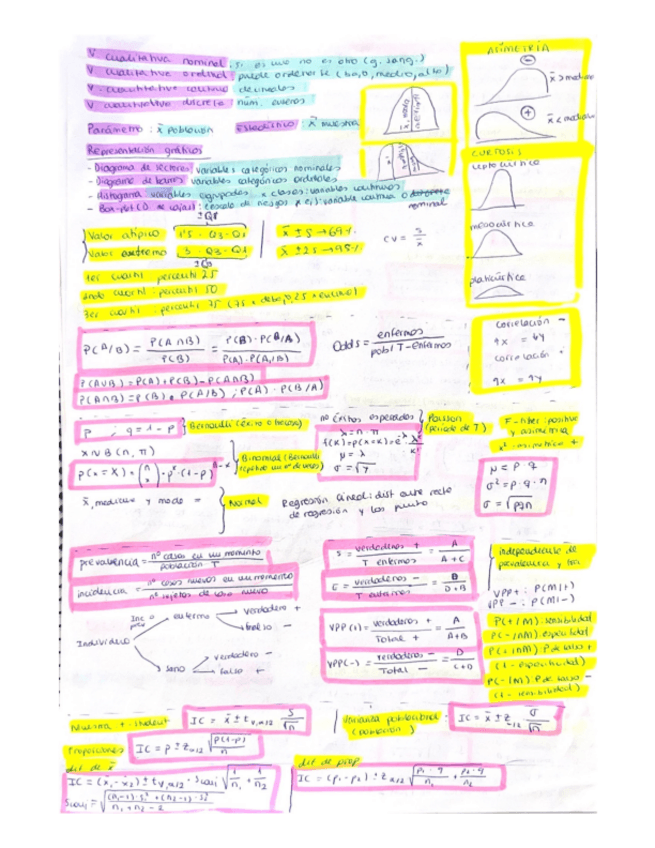 V. cualitativa nominal: si es uno no es otro (g. sang.)
V. cualitativa ordinal: puede ordenarte (bajo, medio, alto)
V. cuantitativa continua: decimales
V. cuantitativa discreta: núm. enteros
Parámetro: x̄ población Estadístico: x̄ muestra
Representación gráficas
- Diagrama de sectores: variables categóricas nominales
- Diagrama de barras: variables categóricas ordinales
- Histograma: variables agrupadas x clases: variables continuas
nominal
ASIMETRÍA
-
x̄ > mediana
+
x̄ < mediana
CURTOSIS
leptocúrtica
mesocúrtica
platicúrtica
Valor atípico 1'5 · Q3-Q1
Valor extremo 3 · Q3-Q1
x̄ ± S → 69%
x̄ ± 2S → 95%
CV = S / x̄
1er cuartil: percentil 25
2ndo cuartil: percentil 50
3er cuartil: percentil 75 (75 x debajo, 25 x encima)
P(A/B) = P(A∩B) / P(B) = P(B)·P(B/A) / P(A)·P(A/B)
Odds = enfermos / pobl T - enfermos
correlación -
correlación +
P(A∪B) = P(A)+P(B)-P(A∩B)
P(A∩B) = P(B)·P(A/B) ; P(A)·P(B/A)
p ; q = 1 - p
Bernoulli (éxito o fracaso)
nº éxitos esperados
λ = n · π
f(x) = P(x=x) = e^-λ λ^x / x!
μ = λ
Poisson
(periodo de T)
x ~ B (n, π)
P(x = X) = (n x) · p^x · (1-p)^n-x
Binomial (Bernoulli
x̄, mediana y moda =
Normal
Regresión lineal: dist entre recta
de regresión y los punto
μ = p · q
σ² = p · q · n
σ = √pqn
prevalencia = nº casos en un momento / población T
incidencia = nº casos nuevos en un momento / nº sujetos de caso nuevo
Individuo
enfermo
verdadero +
falso -
sano
verdadero -
falso +
S = verdaderos + / T enfermos = A / A+C
E = verdaderos - / T enfermos = D / D+B
VPP (+) = verdaderos + / Total + = A / A+B
VPP(-) = verdaderos - / Total - = D / C+D
independiente de
prevalencia y
VPP+ : P(M|+)
VPP- : P(M|-)
P(+/M): sensibilidad
P(-/nM): especificidad
P(+/nM): P de falso +
(1 - especificidad)
P(-/M): P de falso -
(1 - sensibilidad)
Muestra t-student
IC = x̄ ± t v,α/2 S / √n
Varianza poblacional:
(población)
IC = x̄ ± z α/2 σ / √n
Proporciones
IC = p ± z α/2 √ p(1-p) / n
dif de x̄
dif de prop
IC = (x̄₁ - x̄₂) ± t v,α/2 · Sconj √ 1/n₁ + 1/n₂
Sconj = √ (n₁-1)·S₁² + (n₂-1)·S₂² / n₁ + n₂ - 2
IC = (p₁ - p₂) ± z α/2 √ p₁·q / n₁ + p₂·q / n₂